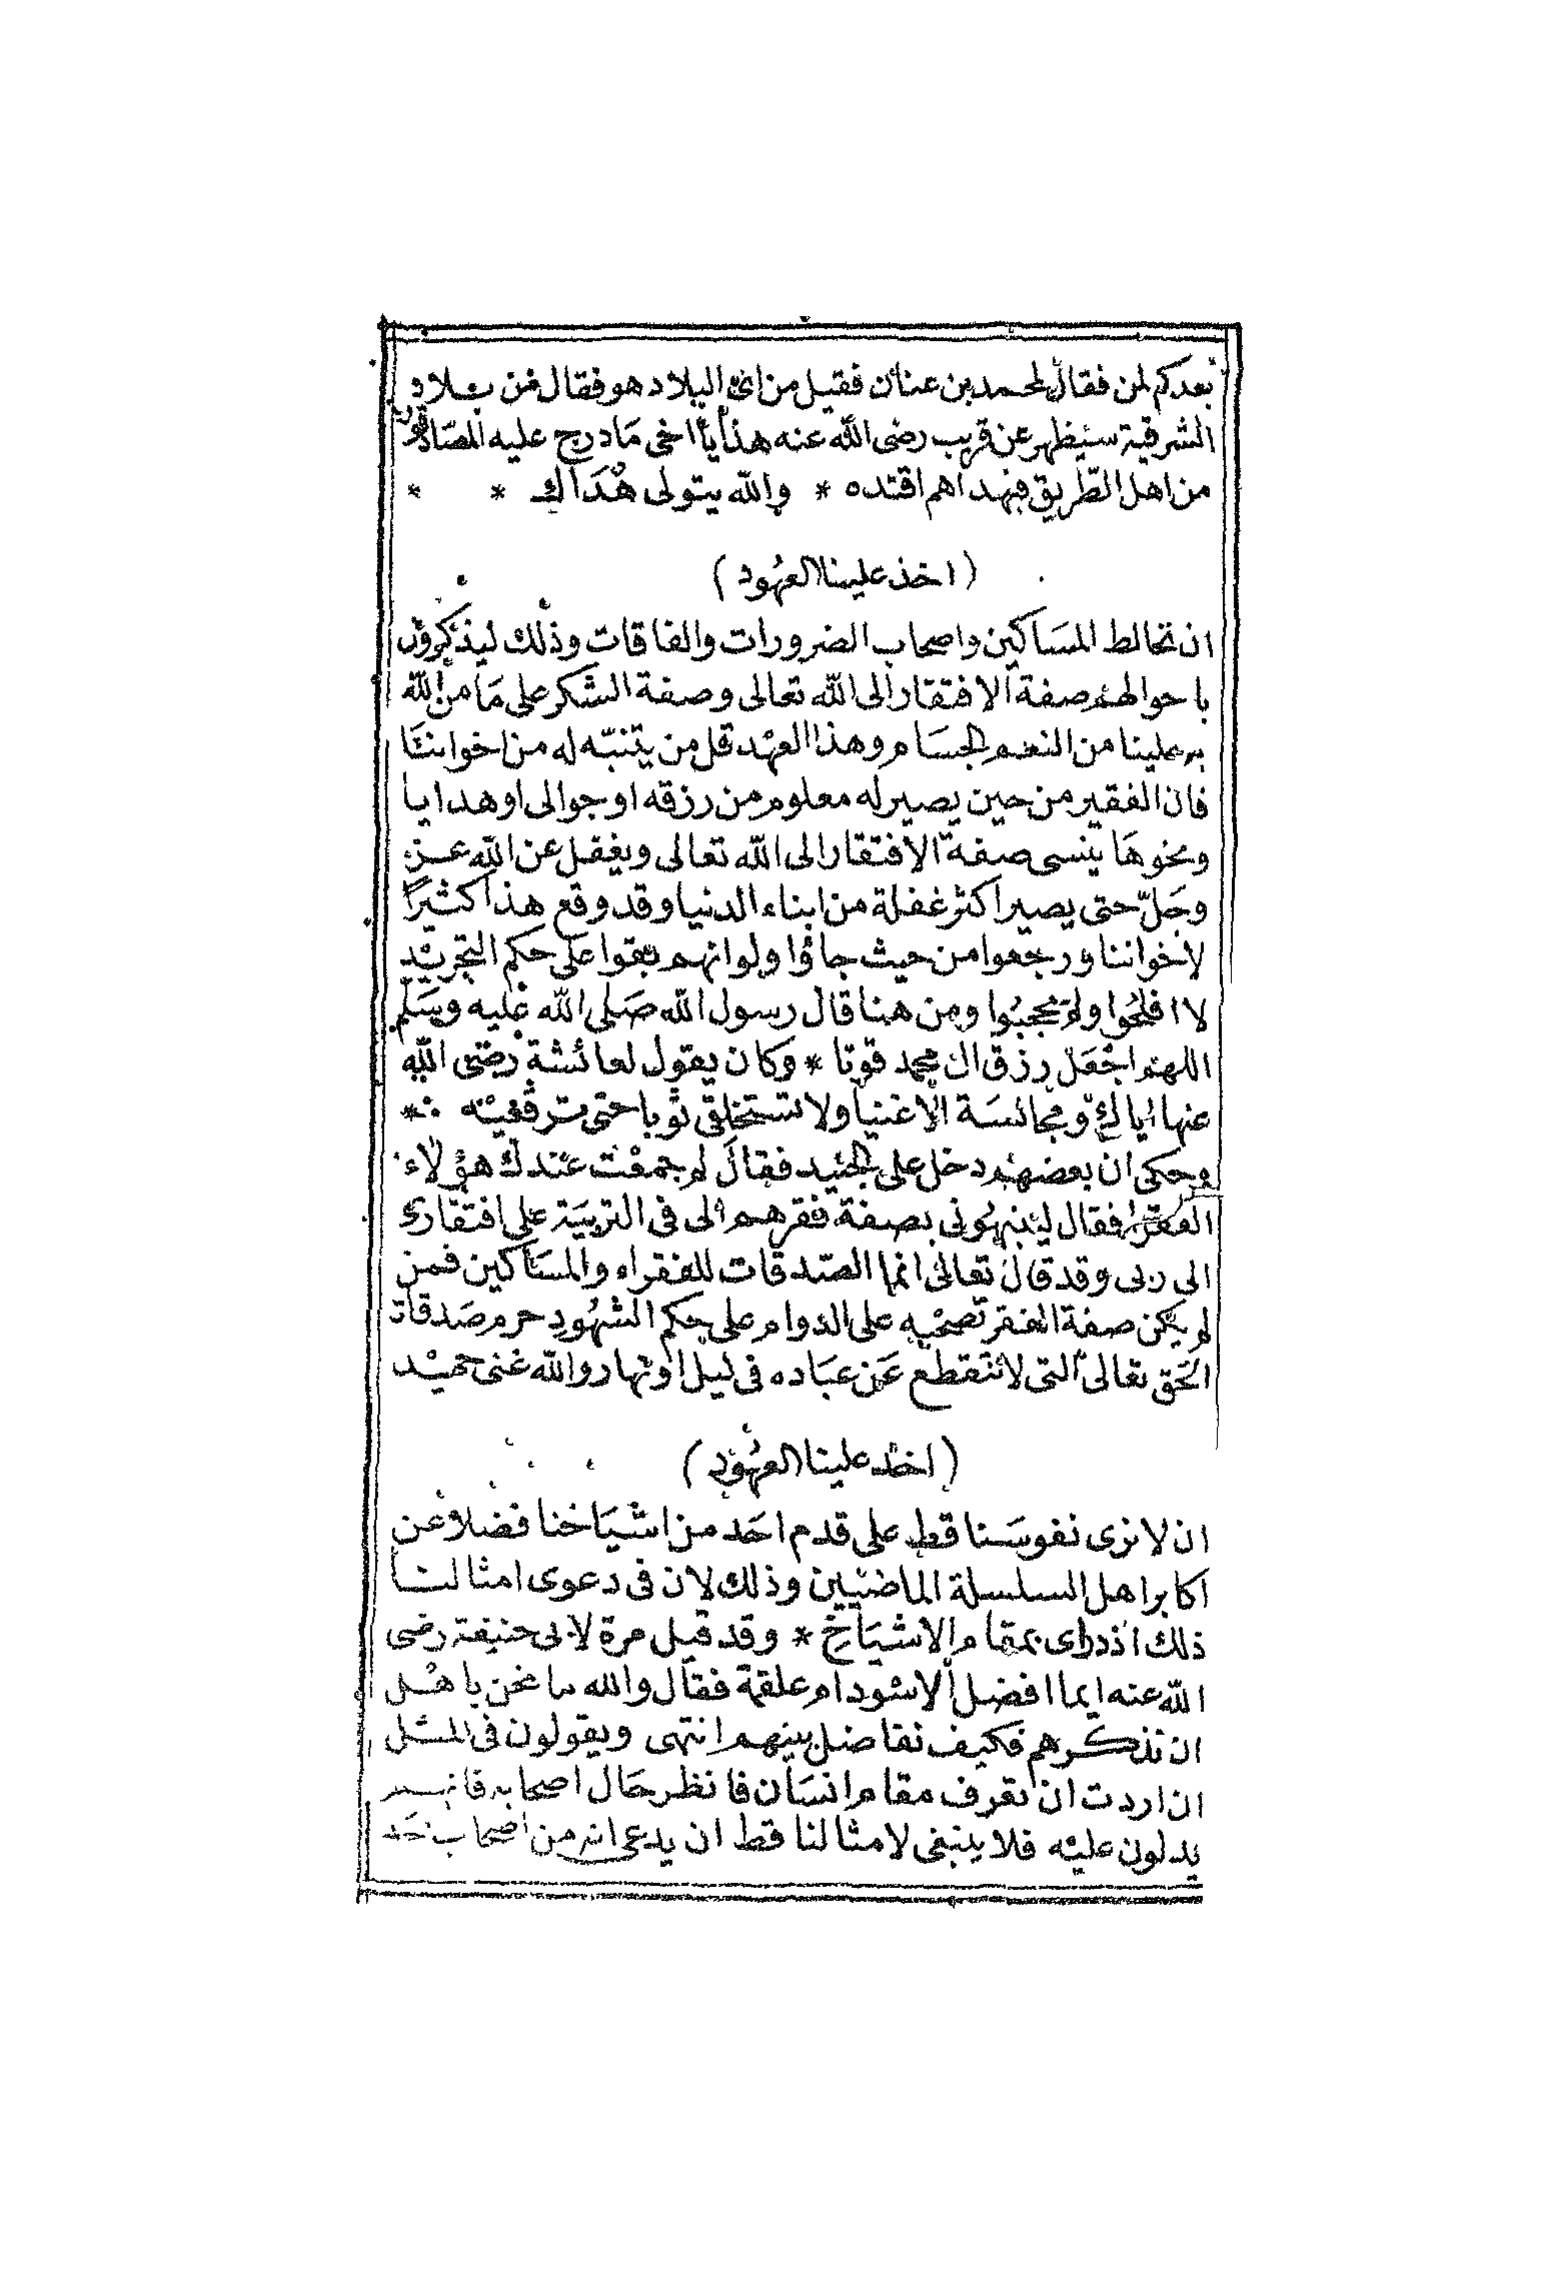 بعدكم لمن فقال لمحمد بن عنان فقيل من اىّ البلاد هو فقال من بلاد
الشرقية سيظهر عن قريب رضى الله عنه هذا يا اخى مَا درج عليه الصَادقون
من اهل الطّريق فبهداهم اقتده * والله يتولى هُدَاك * *
(اخذ علينا العهُود)
ان نخالط المسَاكين واصحاب الضرورات والفاقات وذلك ليذكرون
باحوالهم صفة الافتقار الى الله تعالى وصفة الشكر على مَا من الله
به علينا من النعم الجسَام وهذا العهْد قل من يتنبّه له من اخواننَا
فان الفقير من حين يصير له معلوم من رزقه او جوالى او هدايا
ونحوهَا ينسى صفة الافتقار الى الله تعالى ويغفل عن الله عز
وجَلّ حتى يصير اكثر غفلة من ابناء الدنيا وقد وقع هذا كثيرًا
لاخواننا ورجعوا من حيث جاؤا ولو انهم بقوا على حكم التجريْد
لا افلحُوا ولم يحجبُوا ومن هنا قال رسول الله صَلى الله عليه وسَلم
اللهم اجْعَل رزق ال محمد قوتا * وكان يقول لعائشة رضى الله
عنها اياكِ ومجالسَة الاغنيا ولا تستخلقى ثوبا حتى ترقعيْه *
وحكى ان بعضهم دخل على الجنيد فقال لم جمعْت عندك هؤلاء
الفقراء فقال لينبهُونى بصفة فقرهم الى فى التربيَة على افتقارى
الى ربى وقد قال تعالى انما الصّدقات للفقراء والمسَاكين فمن
لم يكن صفة الفقر تصحْبه على الدوام على حكم الشهُود حرم صَدقات
الحَق تعالى التى لا تنقطع عَن عبَاده فى ليل او نهار والله غنى حميْد
(اخذ علينا العهُود)
ان لا نرى نفوسَنا قط على قدم احَد من اشيَاخنا فضلا عن
اكابر اهل السلسلة الماضيين وذلك لان فى دعوى امثالنا
ذلك اذدراى بمقام الاشيَاخ * وقد قيل مرة لابى حنيفة رضى
الله عنه ايما افضل الاسْود ام علقمة فقال والله ما نحن باهْل
ان نذكرهم فكيف نفاضل بينهم انتهى ويقولون فى المثل
ان اردت ان تعرف مقام انسَان فانظر حَال اصحابه فانهم
يدلون عليْه فلا ينبغى لامثالنا قط ان يدعى انه من اصحاب احَد